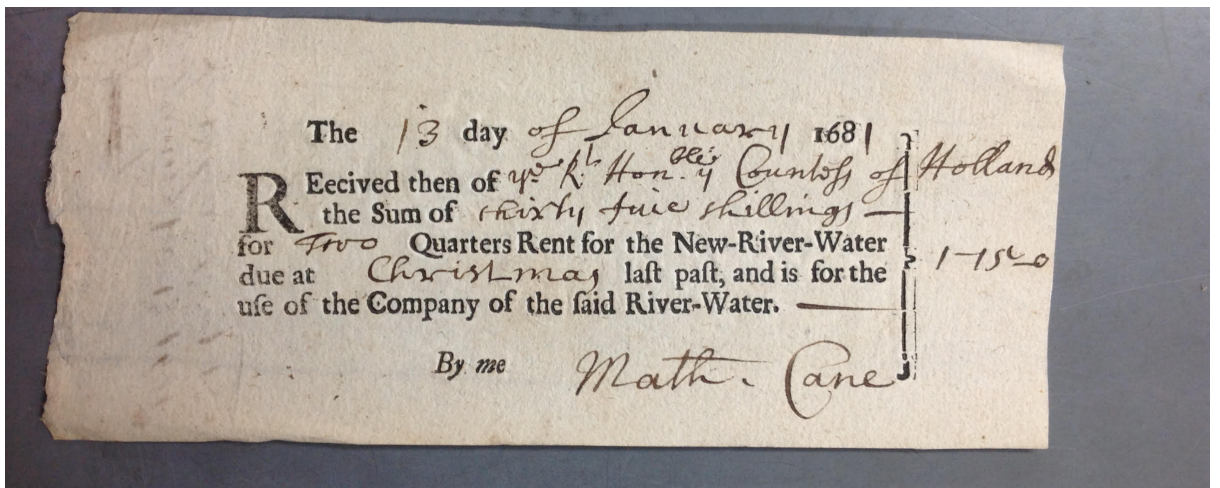 The 13 day of January 1681
REceived then of yᵉ Rᵗ Honᵇˡᵉ yᵉ Countess of Holland
the Sum of thirty five shillings —
for Two Quarters Rent for the New-River-Water 1-15-0
due at Christmas laſt paſt, and is for the
uſe of the Company of the ſaid River-Water. —
By me Math. Cane